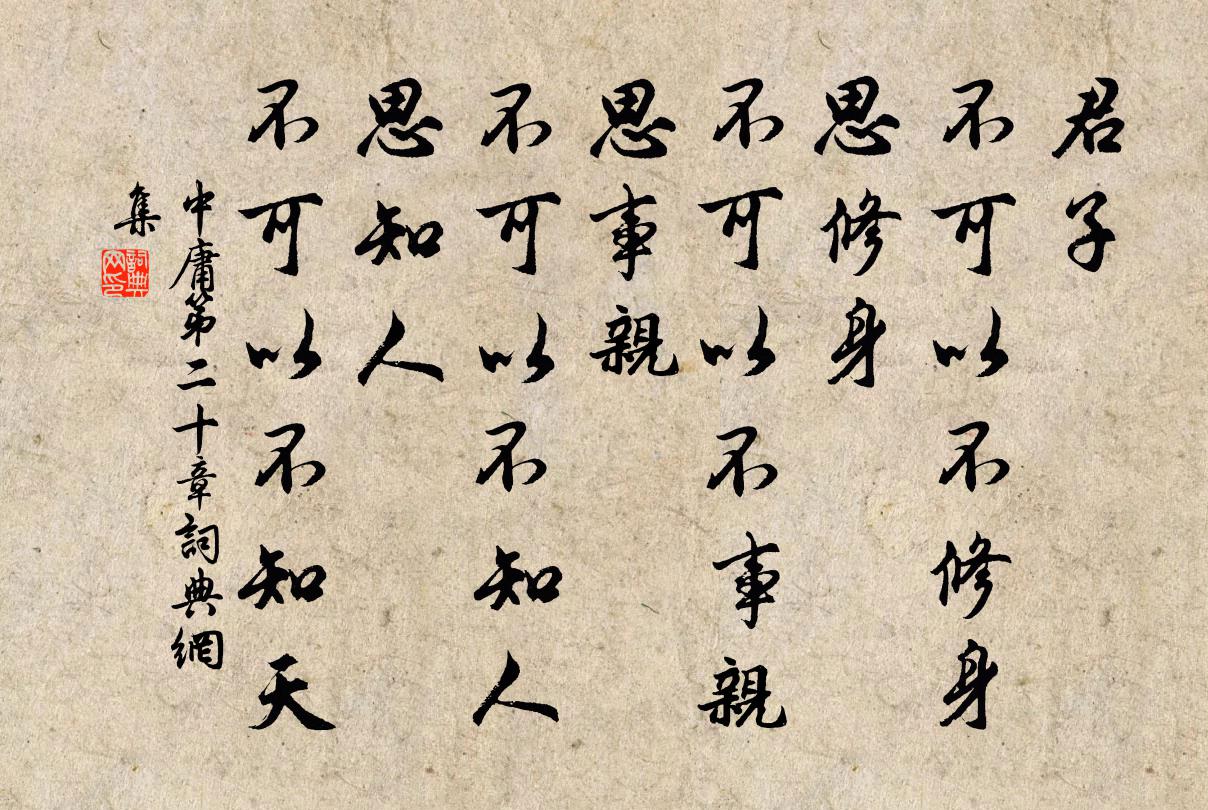 君子
不可以不修身
思修身
不可以不事親
思事親
不可以不知人
思知人
不可以不知天
中庸第二十章詞典網
集
詞典
网印